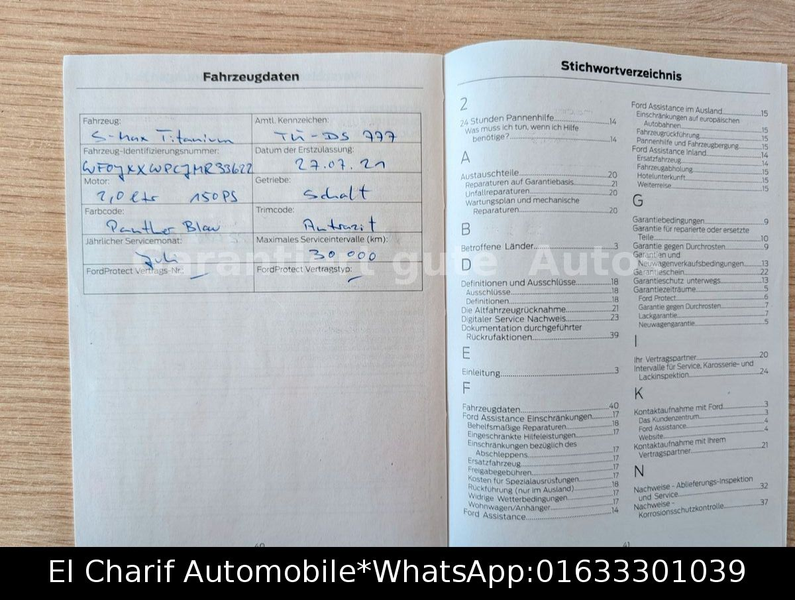 Fahrzeugdaten
Fahrzeug:
S-Max Titanium
Amtl. Kennzeichen:
TÜ-DS 777
Fahrzeug-Identifizierungsnummer:
WF0JXXWPCJMR33622
Datum der Erstzulassung:
27.07.21
Motor:
2,0 ltr 150PS
Getriebe:
Schalt
Farbcode:
Panther Blau
Trimcode:
Antrazit
Jährlicher Servicemonat:
Juli
Maximales Serviceintervalle (km):
30.000
FordProtect Vertrags-Nr.:
FordProtect Vertragstyp:
Garantiert gute Autos
40
Stichwortverzeichnis
2
24 Stunden Pannenhilfe 14
Was muss ich tun, wenn ich Hilfe
benötige? 14
A
Austauschteile 20
Reparaturen auf Garantiebasis 21
Unfallreparaturen 20
Wartungsplan und mechanische
Reparaturen 20
B
Betroffene Länder 3
D
Definitionen und Ausschlüsse 18
Ausschlüsse 18
Definitionen 18
Die Altfahrzeugrücknahme 21
Digitaler Service Nachweis 23
Dokumentation durchgeführter
Rückrufaktionen 39
E
Einleitung 3
F
Fahrzeugdaten 40
Ford Assistance Einschränkungen 17
Behelfsmäßige Reparaturen 18
Eingeschränkte Hilfeleistungen 17
Einschränkungen bezüglich des
Abschleppens 17
Ersatzfahrzeug 17
Freigabegebühren 17
Kosten für Spezialausrüstungen 17
Rückführung (nur im Ausland) 18
Widrige Wetterbedingungen 17
Wohnwagen/Anhänger 17
Ford Assistance 14
Ford Assistance im Ausland 15
Einschränkungen auf europäischen
Autobahnen 15
Fahrzeugrückführung 15
Pannenhilfe und Fahrzeugbergung 15
Ford Assistance Inland 14
Ersatzfahrzeug 14
Fahrzeugabholung 15
Hotelunterkunft 15
Weiterreise 15
G
Garantiebedingungen 9
Garantie für reparierte oder ersetzte
Teile 10
Garantie gegen Durchrosten 9
Garantien und
Neuwagenverkaufsbedingungen 13
Garantieschein 22
Garantieschutz unterwegs 13
Garantiezeiträume 5
Ford Protect 6
Garantie gegen Durchrosten 7
Lackgarantie 7
Neuwagengarantie 5
I
Ihr Vertragspartner 20
Intervalle für Service, Karosserie- und
Lackinspektion 24
K
Kontaktaufnahme mit Ford 3
Das Kundenzentrum 3
Ford Assistance 4
Website 4
Kontaktaufnahme mit Ihrem
Vertragspartner 21
N
Nachweise - Ablieferungs-Inspektion
und Service 32
Nachweise -
Korrosionsschutzkontrolle 37
41
El Charif Automobile*WhatsApp:01633301039